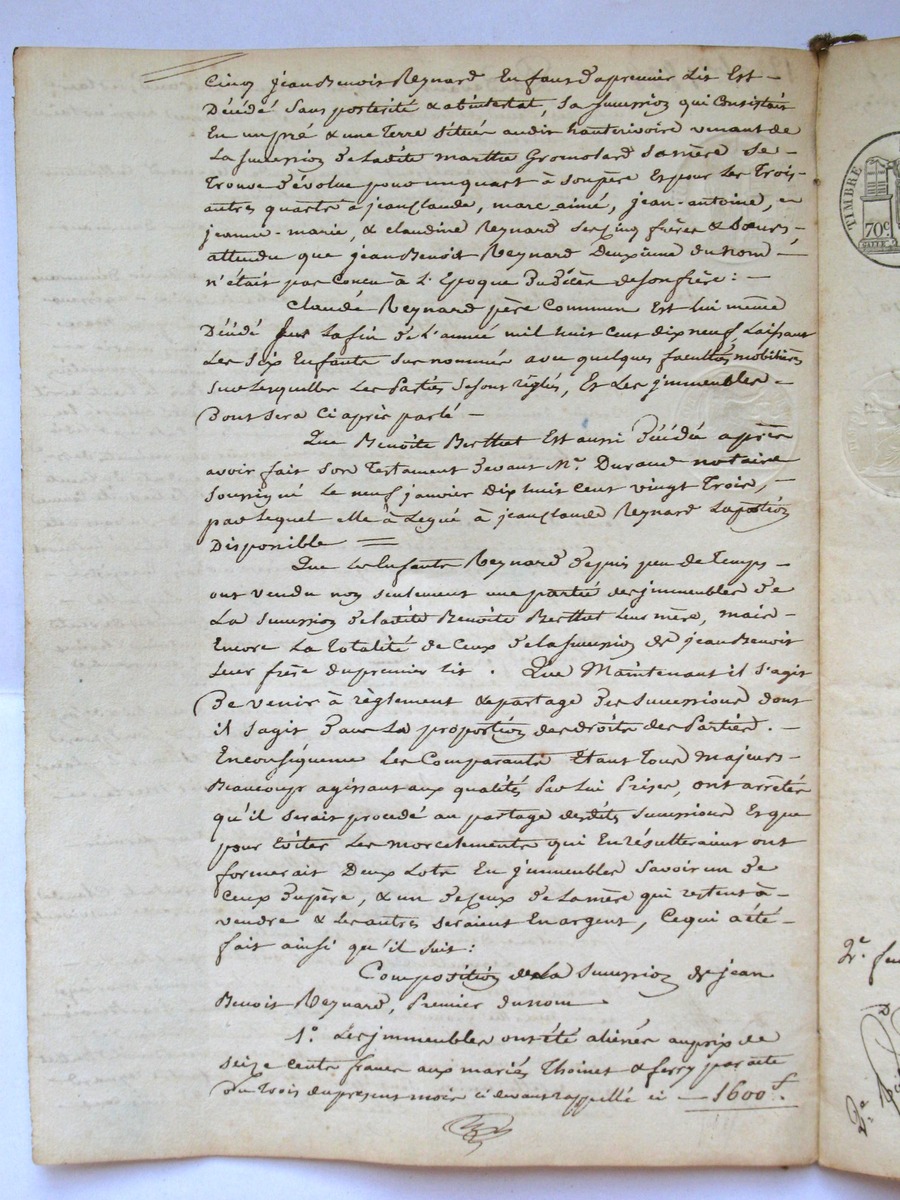 Cinq jean Benoit Reynard Enfant du premier Lit Est -
Décédé Sans postérité & abintestat, Sa Succession qui Consistait
En un pré & une Terre située audit hauterivoire venant de
La Succession de Ladite marthe Gromolard Sa mère Se -
Trouve dévolue pour un quart à Son père Et pour Les Trois -
autres quarts à jean Claude, marc aimé, jean-antoine, en
jeanne-marie, & claudine Reynard Ses Cinq frères & Sœurs -
attendu que jean Benoit Reynard Deuxième du nom -
n'était pas Concu à L'Epoque du Décès de Son frère : -
Claude Reynard père Commun Est lui même
Décédé Sur La fin de L'année mil huit Cent dix neuf, Laissant
Les Six Enfants Sus nommés avec quelques facultés mobilières
Sur Lesquelles Les Parties Se Sont réglés, Et Les jmmeubles -
Dont Sera Ci après parlé -
Que Benoîte Berthet Est aussi Décédée après
avoir fait Son Testament devant Mr. Durand notaire
Soussigné Le neuf janvier Dix huit Cent vingt Trois, -
par Lequel elle à Legué à jean Claude Reynard La portion
Disponible =
Que Les Enfants Reynard depuis peu de Temps -
ont vendu non Seulement une partie des jmmeubles de
La Succession de Ladite Benoîte Berthet Leur mère, mais -
Encore La Totalité de Ceux de la Succession de jean Benoit
Leur frère du premier Lit . Que Maintenant il S'agit
De venir à règlement & partage des Successions dont
il S'agit dans La proportion des droits des Parties. -
En conséquence Les Comparants Etant Tous majeurs -
Beaucoup agissant aux qualités Par Lui Prises, ont arrêtés
qu'il Serait procédé au partage desdits Successions Et que
pour Eviter Les morcelements qui En résulteraient ont
formerait Deux Lots En jmmeubles Savoir un de
Ceux du père, & un de Ceux de La mère qui restent à -
vendre & Les autres Seraient En argent, Ce qui a été -
fait ainsi qu'il Suit :
Composition de La Succession de jean
Benoit Reynard, Premier du nom
1°. Les jmmeubles ont été aliénés au prix de
Seize Cents francs aux mariés Thoinet & ferry par acte
du Trois du présent mois ci devant rappellé ci - 1600 f.
TIMBRE
70c
2e.